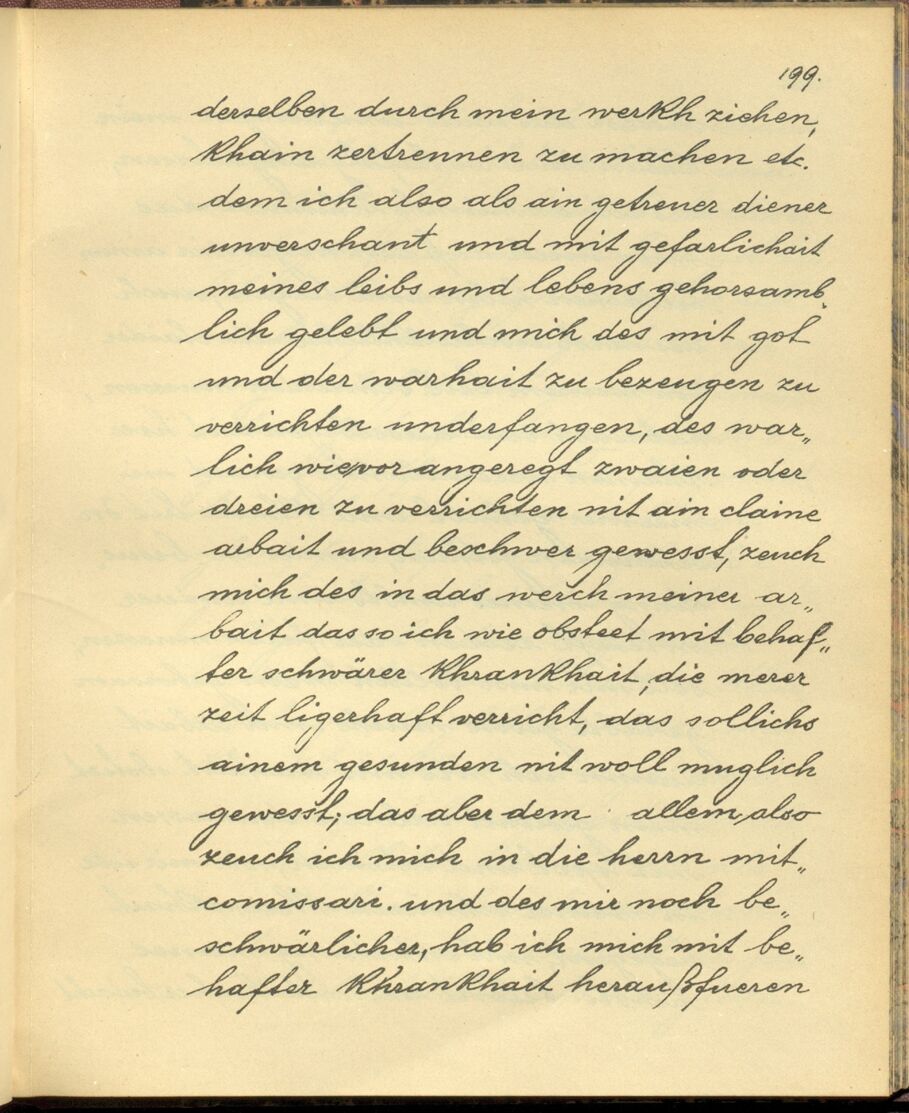 199.
derselben durch mein werkh ziehen,
khain zertrennen zu machen etc.
dem ich also als ain getreuer diener
unverschant und mit gefarlichait
meines leibs und lebens gehorsamb„
lich gelebt und mich des mit got
und der warhait zu bezeugen zu
verrichten underfangen, des war„
lich wievor angeregt zwaien oder
dreien zu verrichten nit ain claine
arbait und beschwer gewesst, zeuch
mich des in das werch meiner ar„
bait das so ich wie obsteet mit behaf„
ter schwärer khrankhait, die merer
zeit ligerhaft verricht, das sollichs
ainem gesunden nit woll muglich
gewesst; das aber dem allem also
zeuch ich mich in die herrn mit„
comissari. und des mir noch be„
schwärlicher, hab ich mich mit be„
hafter khrankhait heraußfueren